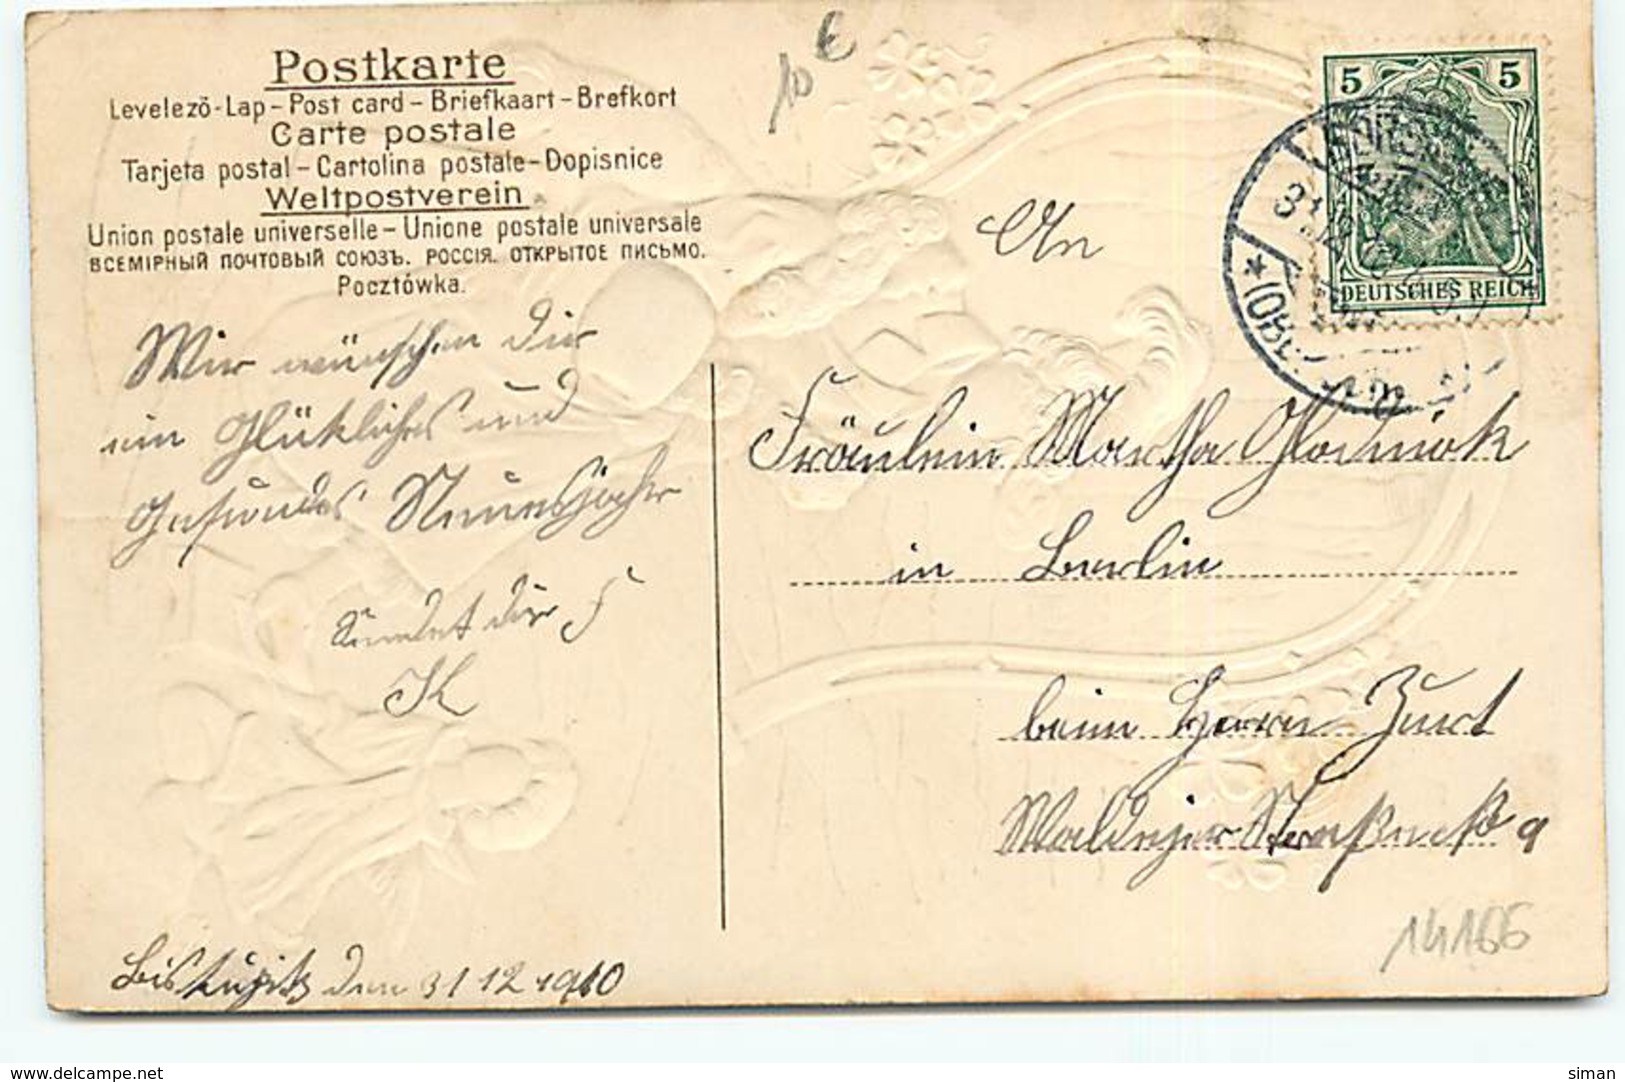 Postkarte
Levelező-Lap – Post card – Briefkaart – Brefkort
Carte postale
Tarjeta postal – Cartolina postale – Dopisnice
Weltpostverein
Union postale universelle – Unione postale universale
ВСЕМІРНЫЙ ПОЧТОВЫЙ СОЮЗЪ. РОССІЯ. ОТКРЫТОЕ ПИСЬМО.
Pocztówka.
10 €
5 5
DEUTSCHES REICH
An
Wir wünschen dir
ein Glükliches und
Gesundes Neuesjahr
K
den 31 12 1910
Fräulein Martha
in Berlin
beim Herrn
Straße 9
14166
delcampe.net
siman